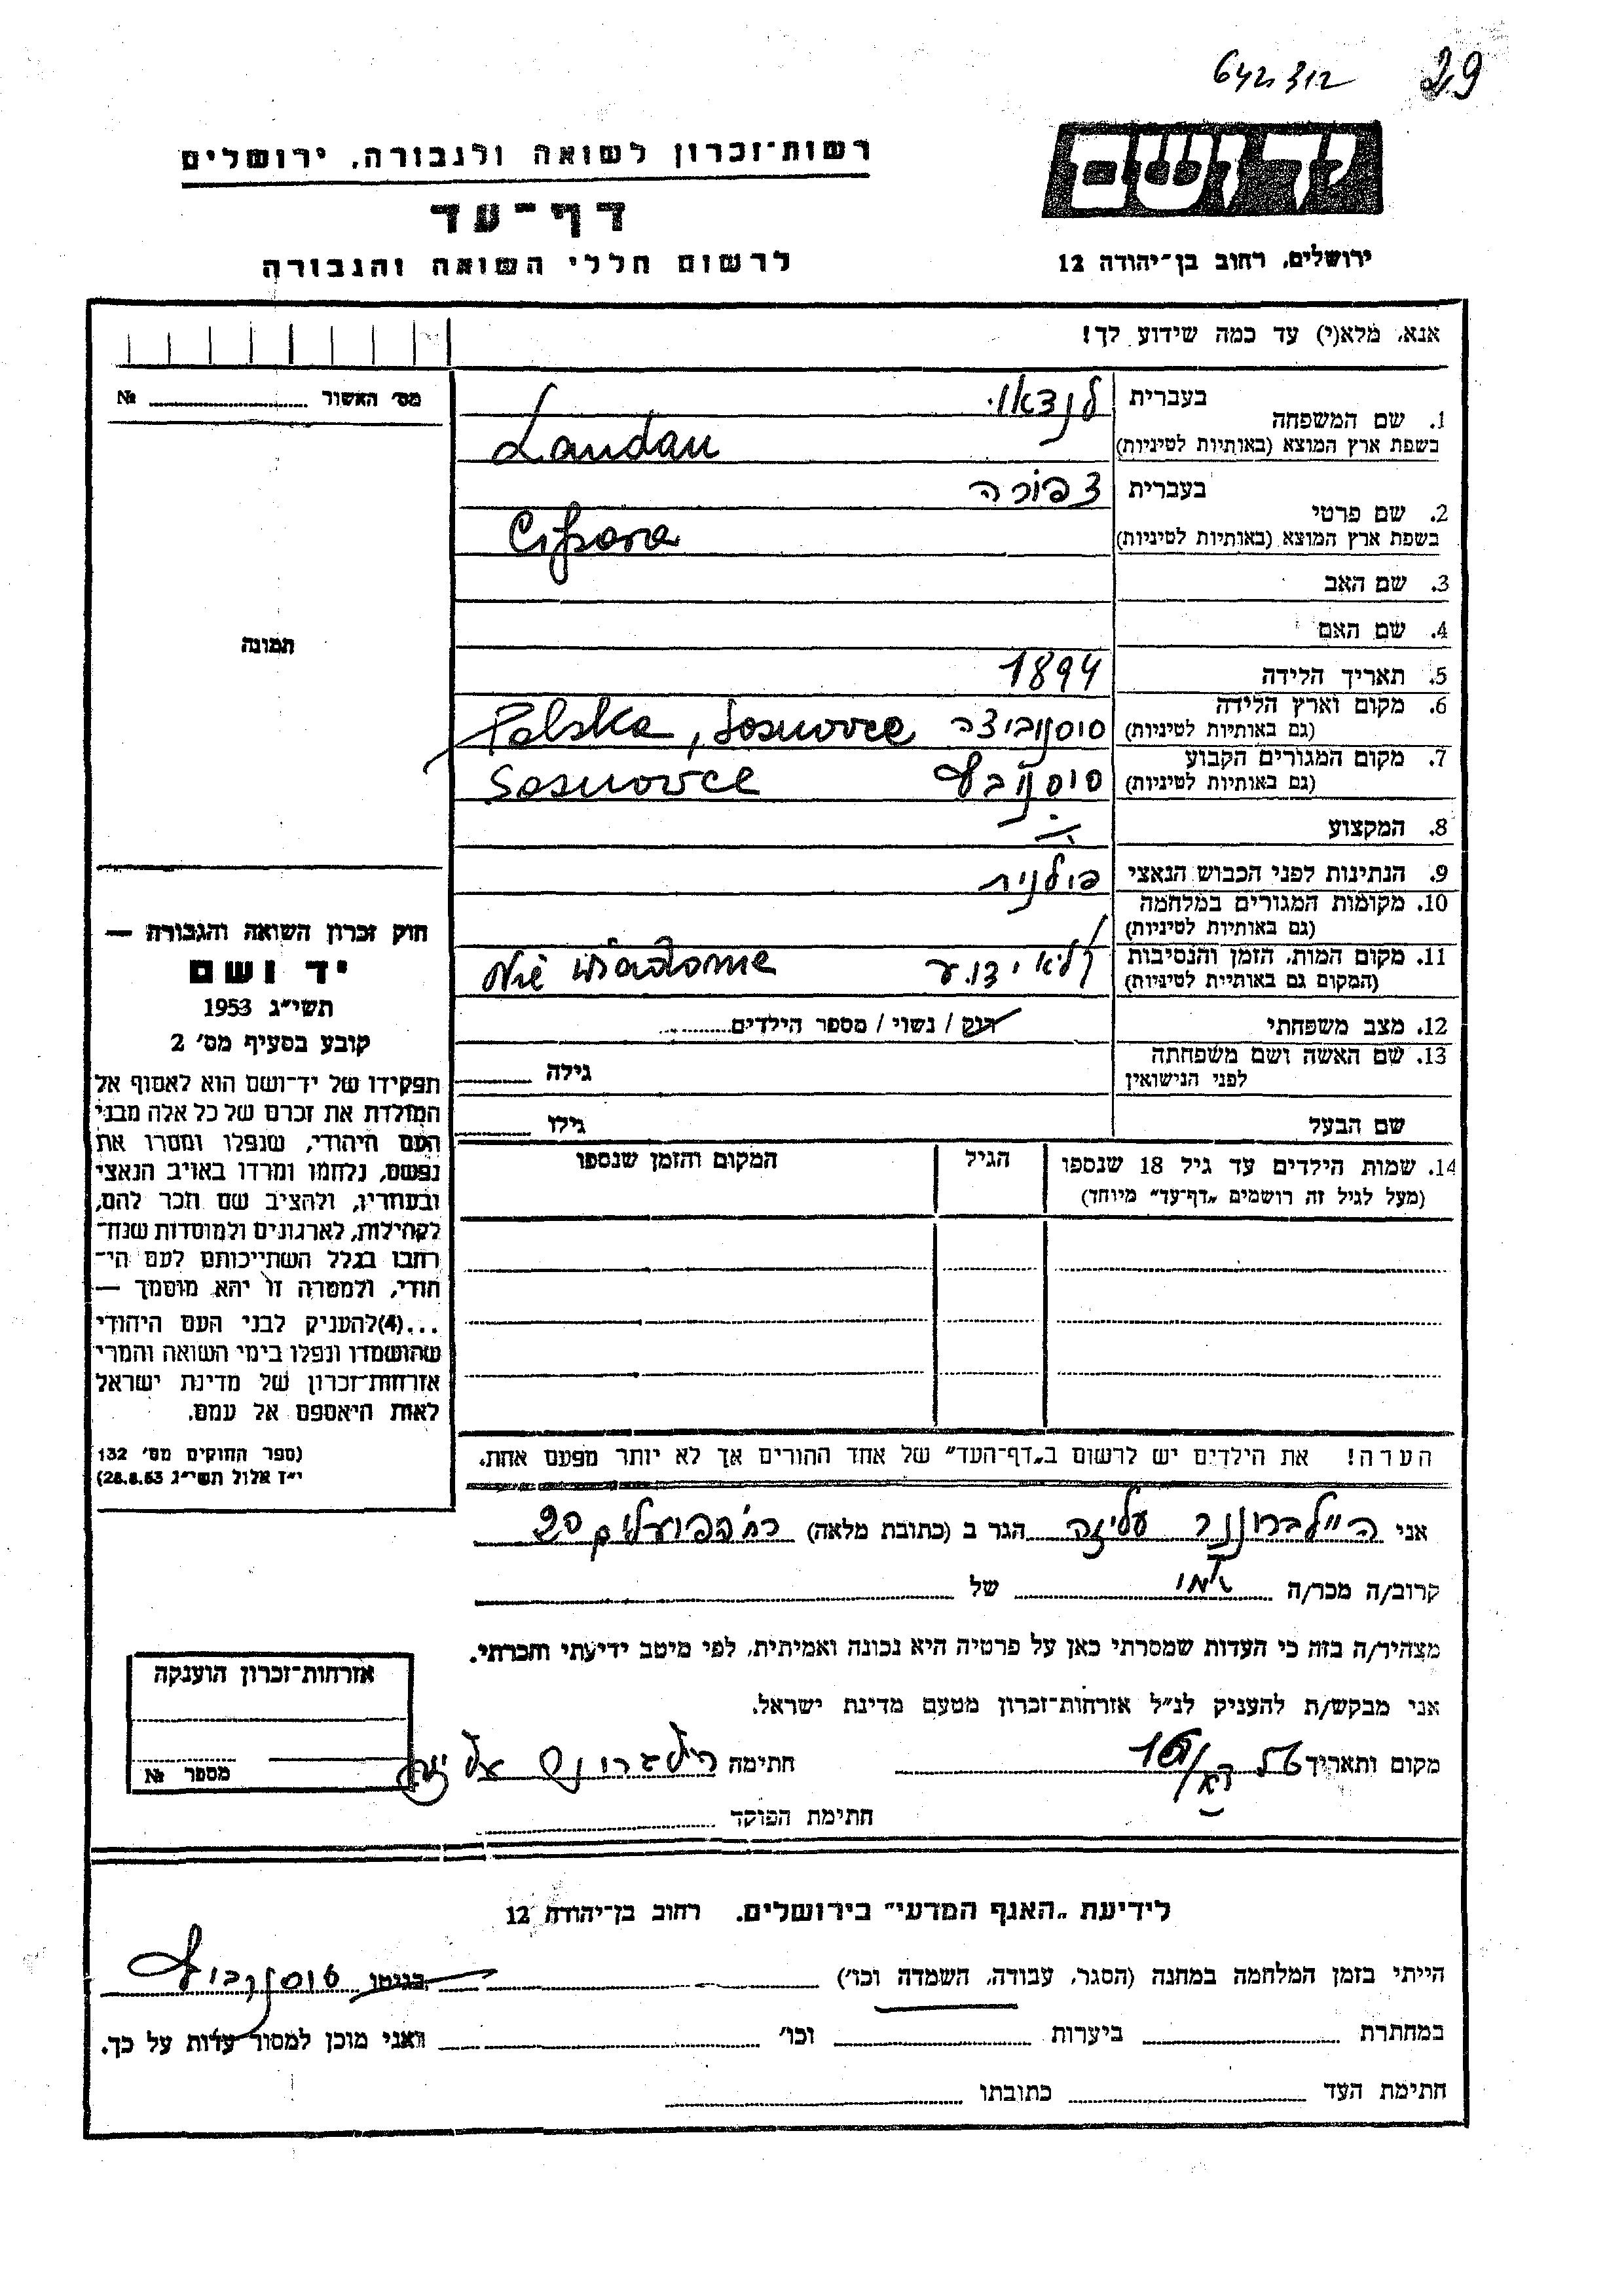 642312 29
יד ושם
רשות־זכרון לשואה ולגבורה, ירושלים
דף־עד
לרשום חללי השואה והגבורה
ירושלים, רחוב בן־יהודה 12
אנא, מלא(י) עד כמה שידוע לך!
מס׳ האשור № 
1. שם המשפחה
בעברית לנדאו
בשפת ארץ המוצא (באותיות לטיניות) Landau
2. שם פרטי
בעברית צפורה
בשפת ארץ המוצא (באותיות לטיניות) Cipora
3. שם האב
4. שם האם
תמונה
5. תאריך הלידה 1894
6. מקום וארץ הלידה
(גם באותיות לטיניות) סוסנוביצה Polska, Sosnovce
7. מקום המגורים הקבוע
(גם באותיות לטיניות) Sosnovce
8. המקצוע
9. הנתינות לפני הכבוש הנאצי פולנית
10. מקומות המגורים במלחמה
(גם באותיות לטיניות)
11. מקום המות, הזמן והנסיבות
(המקום גם באותיות לטיניות) לא ידוע Nie wiadome
12. מצב משפחתי רוק / נשוי / מספר הילדים
13. שם האשה ושם משפחתה
לפני הנישואין גילה
שם הבעל גילו
14. שמות הילדים עד גיל 18 שנספו הגיל המקום והזמן שנספו
(מעל לגיל זה רושמים „דף־עד״ מיוחד)
חוק זכרון השואה והגבורה —
יד ושם
תשי״ג 1953
קובע בסעיף מס׳ 2
תפקידו של יד־ושם הוא לאסוף אל
המולדת את זכרם של כל אלה מבני
העם היהודי, שנפלו ומסרו את
נפשם, נלחמו ומרדו באויב הנאצי
ובעוזריו, ולהציב שם וזכר להם,
לקהילות, לארגונים ולמוסדות שנח־
רבו בגלל השתייכותם לעם הי־
הודי, ולמטרה זו יהא מוסמך —
...(4)להעניק לבני העם היהודי
שהושמדו ונפלו בימי השואה והמרי
אזרחות־זכרון של מדינת ישראל
לאות היאספם אל עמם.
(ספר החוקים מס׳ 132
י״ז אלול תשי״ג 28.8.53)
הערה! את הילדים יש לרשום ב„דף־העד״ של אחד ההורים אך לא יותר מפעם אחת.
אני היילברונר עליזה הגר ב (כתובת מלאה) רח׳ הפועלים 20
קרוב/ה מכר/ה של
מצהיר/ה בזה כי העדות שמסרתי כאן על פרטיה היא נכונה ואמיתית, לפי מיטב ידיעתי והכרתי.
אני מבקש/ת להעניק לנ״ל אזרחות־זכרון מטעם מדינת ישראל.
מקום ותאריך חתימה
חתימת הפוקד
אזרחות־זכרון הוענקה
מספר №
לידיעת „האגף המדעי״ בירושלים, רחוב בן־יהודה 12
הייתי בזמן המלחמה במחנה (הסגר, עבודה, השמדה וכו׳) בגיטו
במחתרת ביערות וכו׳ ואני מוכן למסור עדות על כך.
חתימת העד כתובתו